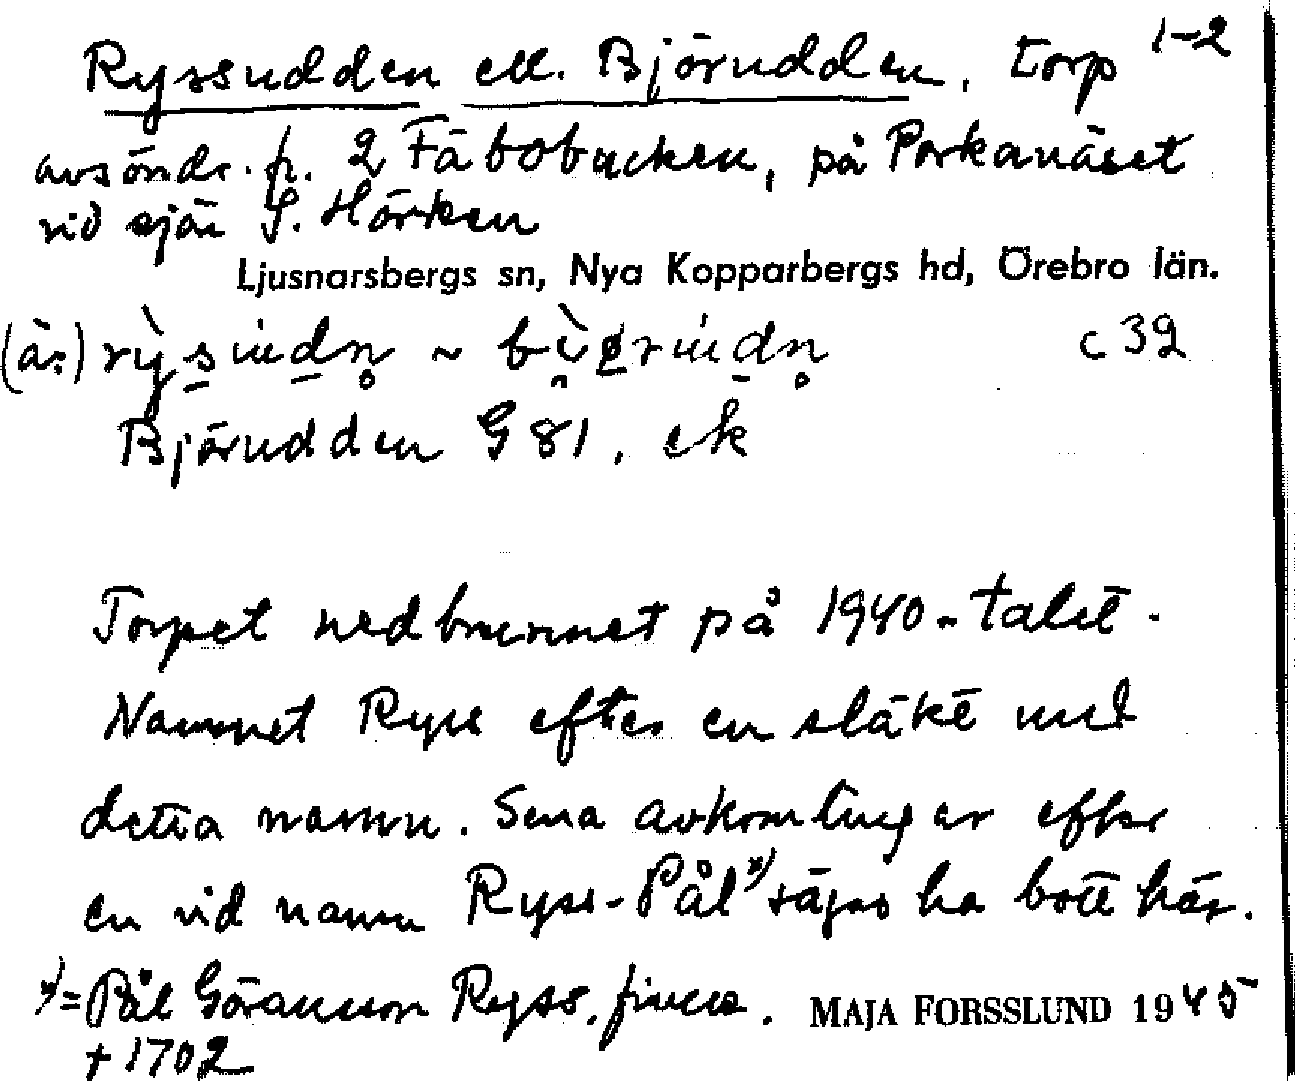 Ryssudden ell. Björudden, torp 1-2
avsöndr. fr. 2 Fäbobacken, på Porkanäset
vid sjön S. Hörken
Ljusnarsbergs sn, Nya Kopparbergs hd, Örebro län.
(ä:) c 32
Björudden G 81, ek
Torpet nedbrunnet på 1940-talet.
Namnet Ryss efter en släkt med
detta namn. Sena avkomlingar efter
en vid namn Ryss-Pål x) säges ha bott här.
x) = Pål Göransson Ryss, finne. MAJA FORSSLUND 1945
† 1702